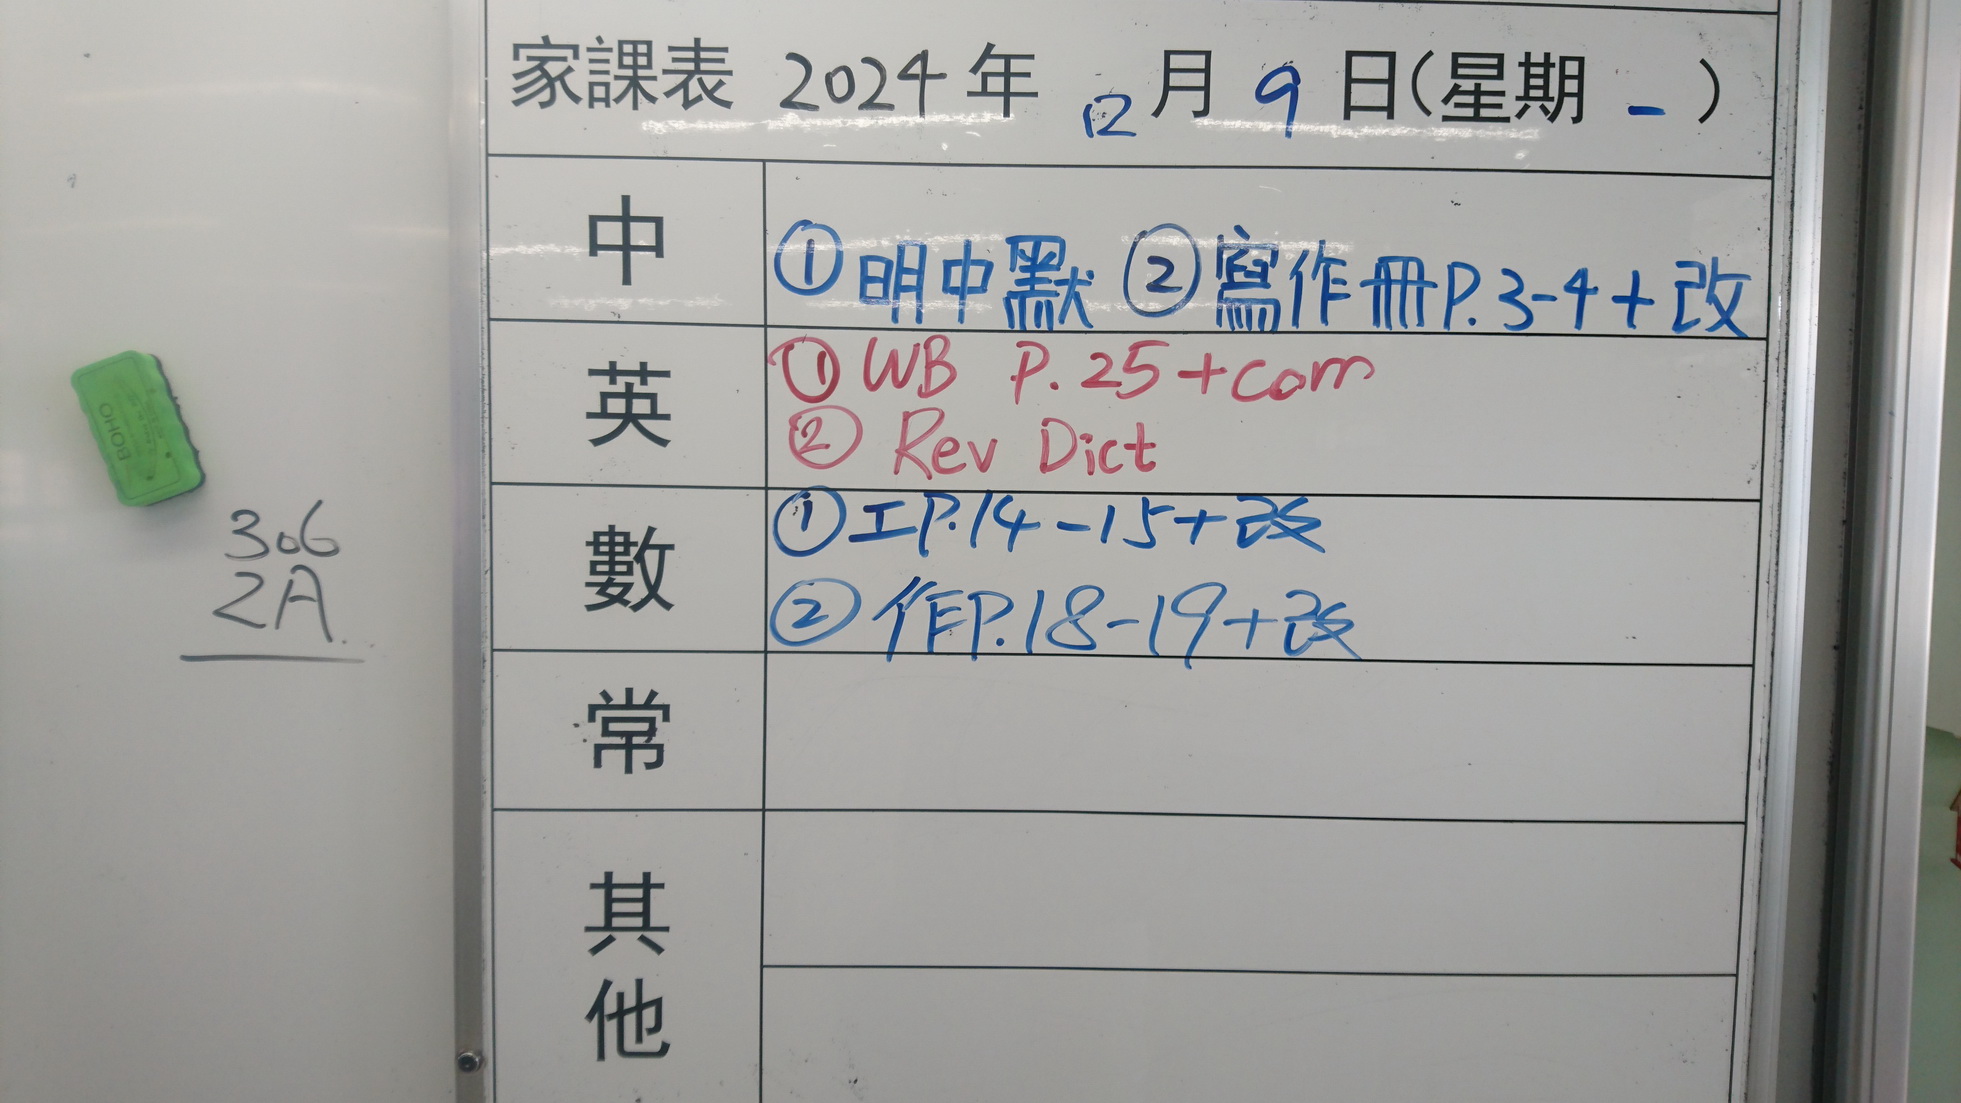 家課表 2024年 12月9日(星期一)
中
①明中默 ②寫作冊P.3-4+改
英
① WB P.25+corr
② Rev Dict
數
①工P.14-15+改
②作P.18-19+改
常
其他
BOHO
306
2A